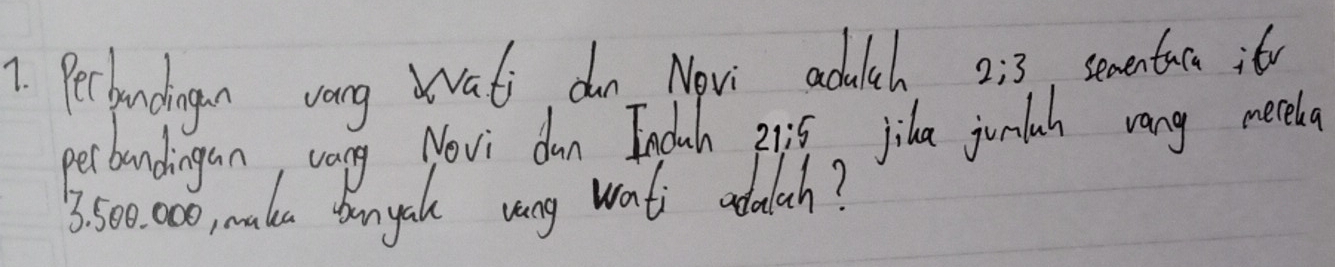 1. Perbandingan uang Wati dan Novi adalah 2:3 sementara itu
perbandingan uang Novi dan Indah 21:5 jika jumlah uang mereka
3.500.000, maka banyak uang Wati adalah?